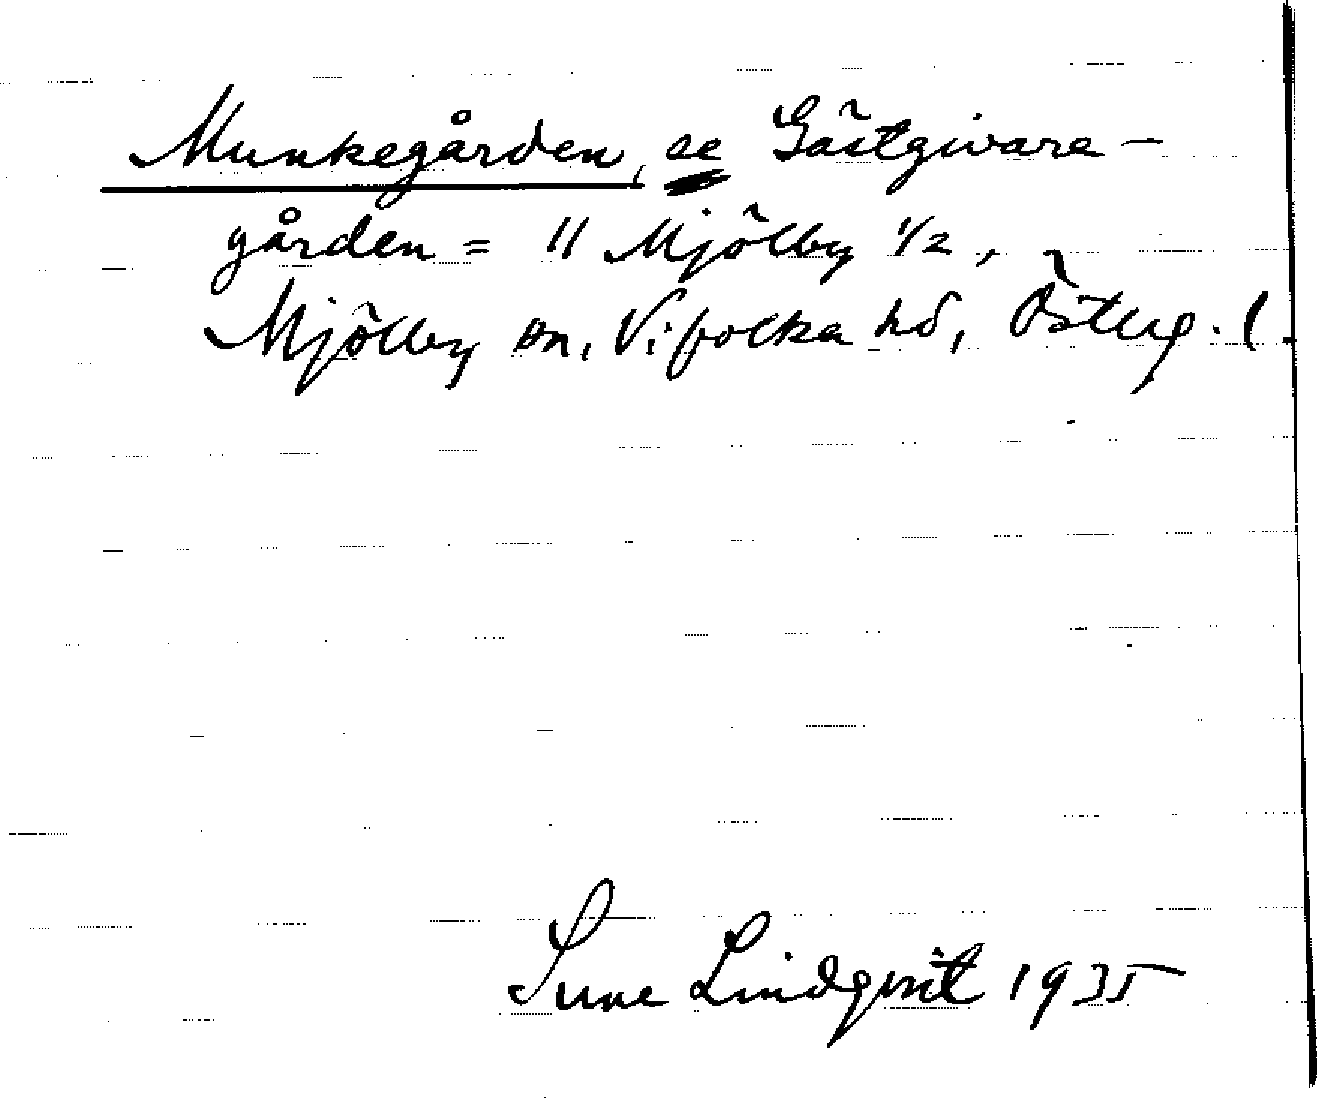 Munkegården, se Gästgivare-
gården = 11 Mjölby 1/2,
Mjölby sn, Vifolka hd, Österg. l.
Sune Lindqvist 1935